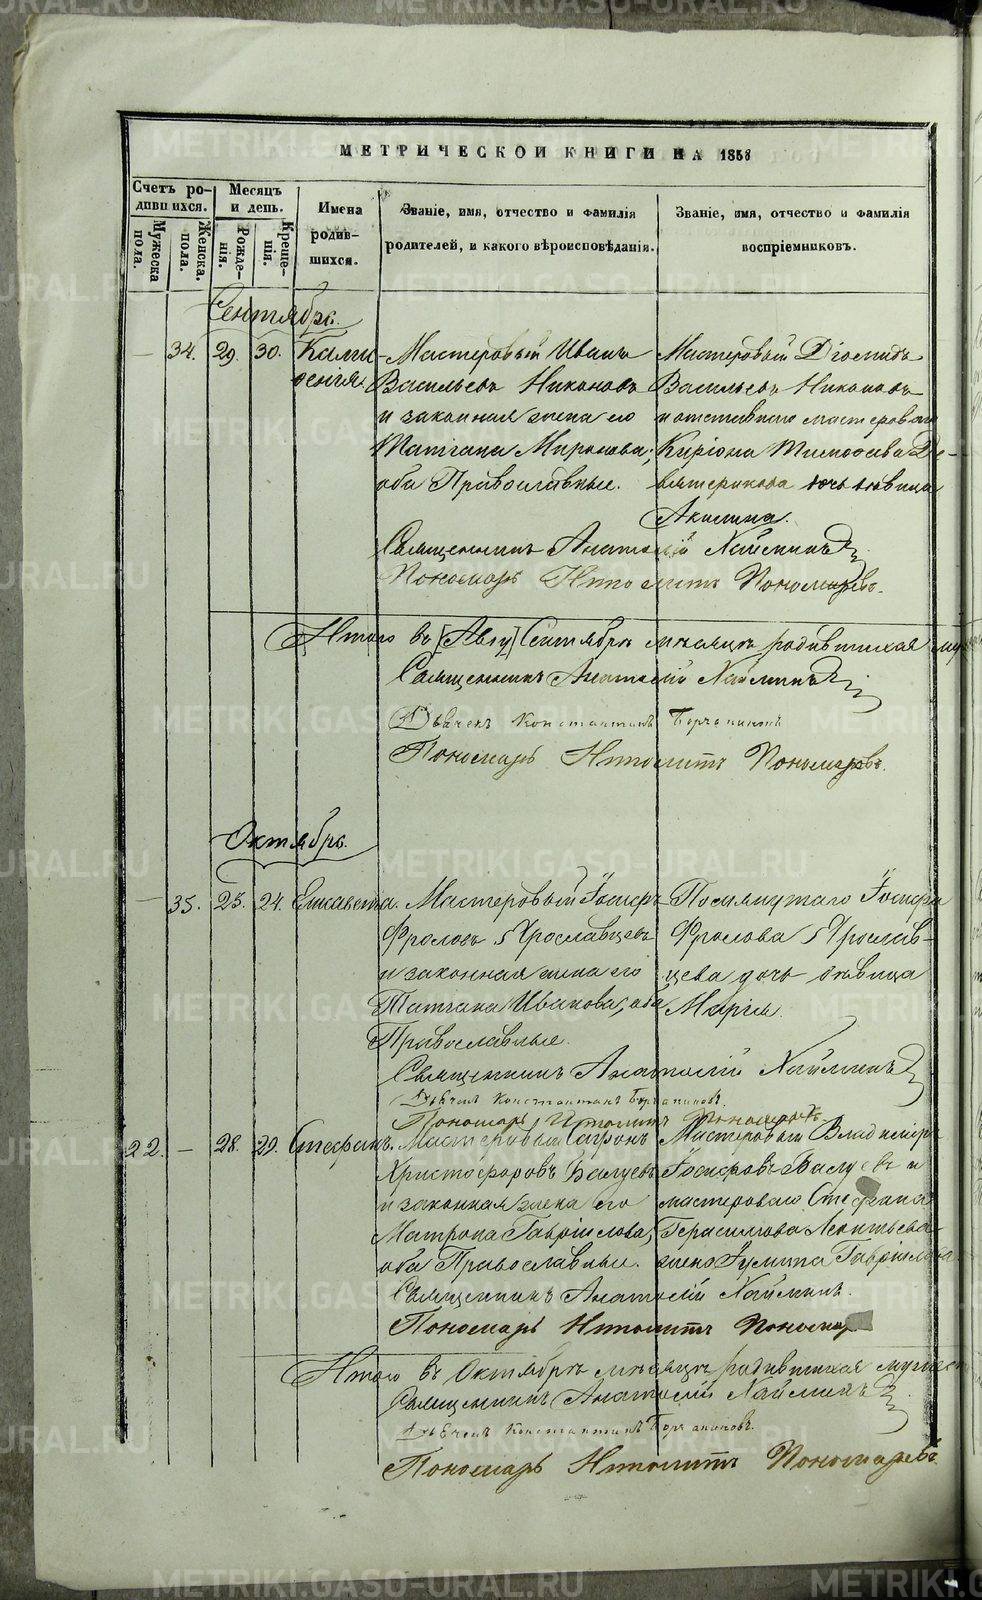 МЕТРИЧЕСКОЙ КНИГИ НА 1858
Счетъ родившихся.
Мужеска пола.
Женска. пола.
Месяцъ и день.
Рожденія.
Крещенія.
Имена родившихся.
Званіе, имя, отчество и фамилія
родителей, и какого вѣроисповѣданія.
Званіе, имя, отчество и фамилія
воспріемниковъ.
Сентябрь.
34. 29. 30.
Мастеровый Иванъ
Васильевъ Никоновъ
и законная жена его
Татіана Миронова,
оба Православные.
Мастеровый Діомидъ
Васильевъ Никоновъ
и отставнаго мастероваго
Киріона Тимофеева
дочь дѣвица
Акилина.
Священникъ Анатолій
Пономарь Иполитъ Пономаревъ.
Итого въ [Авгу] Сентябрѣ мѣсяцѣ родившихся
Священникъ Анатолій
Дьячекъ Константинъ
Пономарь Иполитъ Пономаревъ.
Октябрь.
35. 23. 24. Елисавета.
Мастеровый Іосифъ
Фроловъ Ярославцевъ
и законная жена его
Татіана Иванова, оба
Православные.
Іосифа
Фролова Ярослав-
цева дочь дѣвица
Марія.
Священникъ Анатолій
Дьячекъ Константинъ
Пономарь Иполитъ Пономаревъ
22. 28. 29. Стефанъ.
Мастеровый
Христофоровъ Валуевъ
и законная жена его
Матрона Гавріилова,
оба Православные.
Мастеровый Владиміръ
Іосифовъ Валуевъ и
мастероваго Стефана
Герасимова Леонтьева
жена Гавріилова.
Священникъ Анатолій
Пономарь Иполитъ
Итого въ Октябрѣ мѣсяцѣ родившихся
Священникъ Анатолій
Дьячекъ Константинъ
Пономарь Иполитъ Пономаревъ
METRIKI.GASO-URAL.RU